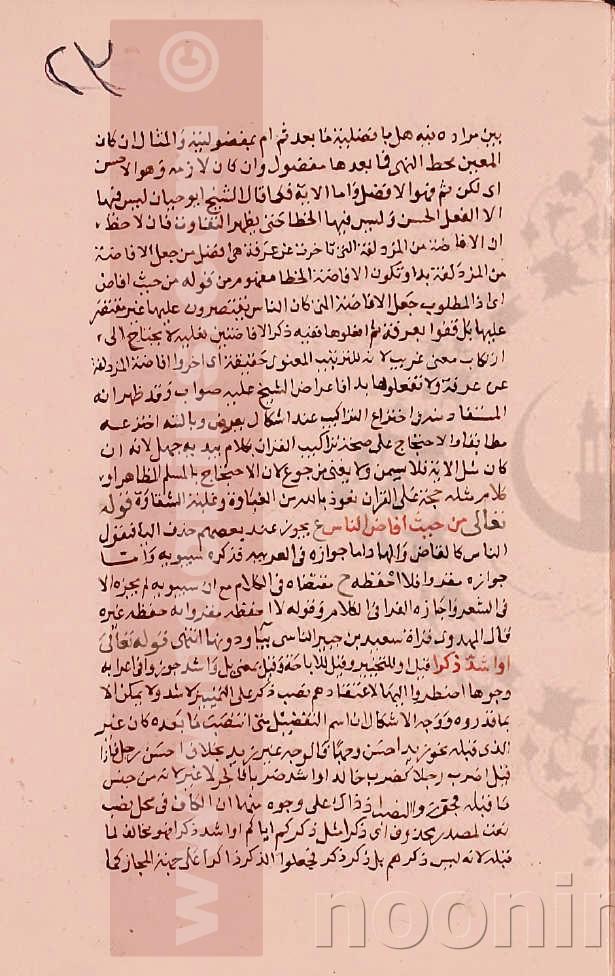 ٢٢
بين مراده منه هل بافضلية ما بعد ثم ام بمفضولية والمثال ان كان
المعين محط النهى فما بعدها مفضول وان كان لازمه وهو الاحسن
اى لكن ثم فهو الافضل واما الاية فكما قال الشيخ ابو حيان ليس فيها
الا الفعل الحسن وليس فيها الخطا حتى يظهر التفاوت فان لاحظ
ان الافاضة من المزدلفة التى تاخرت عن عرفة هى افضل من جعل الافاضة
من المزدلفة بدا وتكون الافاضة الخطا مفهوم من قوله من حيث افاض
اى اذ المطلوب جعل الافاضة التى كان الناس يقتصرون عليها غير مقتصر
عليها بل قفوا بعرفة ثم افعلوها ففيه ذكر الافاضتين فعليه لا يحتاج الى
ارتكاب معنى غريب لانه للترتيب المعنوى حقيقة اى اخروا افاضة المزدلفة
عن عرفة ولا تفعلوها بدا فاعراض الشيخ عليه صواب وقد ظهر انه
المستفاد واختراع التراكيب عند اشكال يعرض وياليته اخترعه
مطابقا والاحتجاج على صحة تراكيب القران بكلام يبديه جهل لانه ان
كان مثل الاية فلا يسمن ولا يغنى من جوع لان الاحتجاج بالمسلم الظاهر او
كلام مثله حجة على القران نعوذ بالله من الغباوة وغلبة الشقاوة قوله
تعالى من حيث افاض الناس ع يجوز عند بعضهم حذف اليا فيقول
الناس كالقاض والهاد اما جوازه فى العربية فذكره سيبويه واما
جوازه مقروا فلا احفظه ح مقتضاه فى الكلام مع ان سيبويه لم يجزه الا
فى الشعر واجازه الفرا فى الكلام وقوله لا احفظه مقروا به حفظه غيره
قال المهدوى قراة سعيد بن جبير الناسى بيا ودونها انتهى قوله تعالى
او اشد ذكرا قيل او للتخيير وقيل للاباحة وقيل بمعنى بل واشد جوزوا فى اعرابه
وجوها اضطروا اليها لاعتقادهم نصب ذكر على التمييز لاشد ولا يمكن الا
بما قدروه ووجه الاشكال ان اسم التفضيل متى انتصب ما بعده كان غير
الذى قبله نحو زيد احسن وجها فالوجه غير زيد بخلاف احسن رجل فاذا
قيل اضرب رجلا كضرب خالد او اشد ضربا فالجر لا غير لانه من جنس
ما قبله فجوزوا النصب اذ ذاك على وجوه منها ان الكاف فى محل نصب
نعت لمصدر محذوف اى ذكرا مثل ذكركم اباكم او اشد ذكرا فهو مخالف لما
قبله لانه ليس ذكرهم بل ذكر ذكر فجعلوا الذكر ذاكرا على جهة المجاز كما
noonin